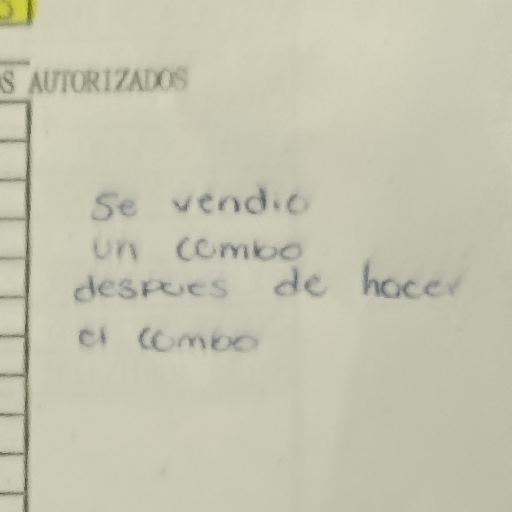 AS AUTORIZADOS
se vendio
un combo
despues de hacer
el combo